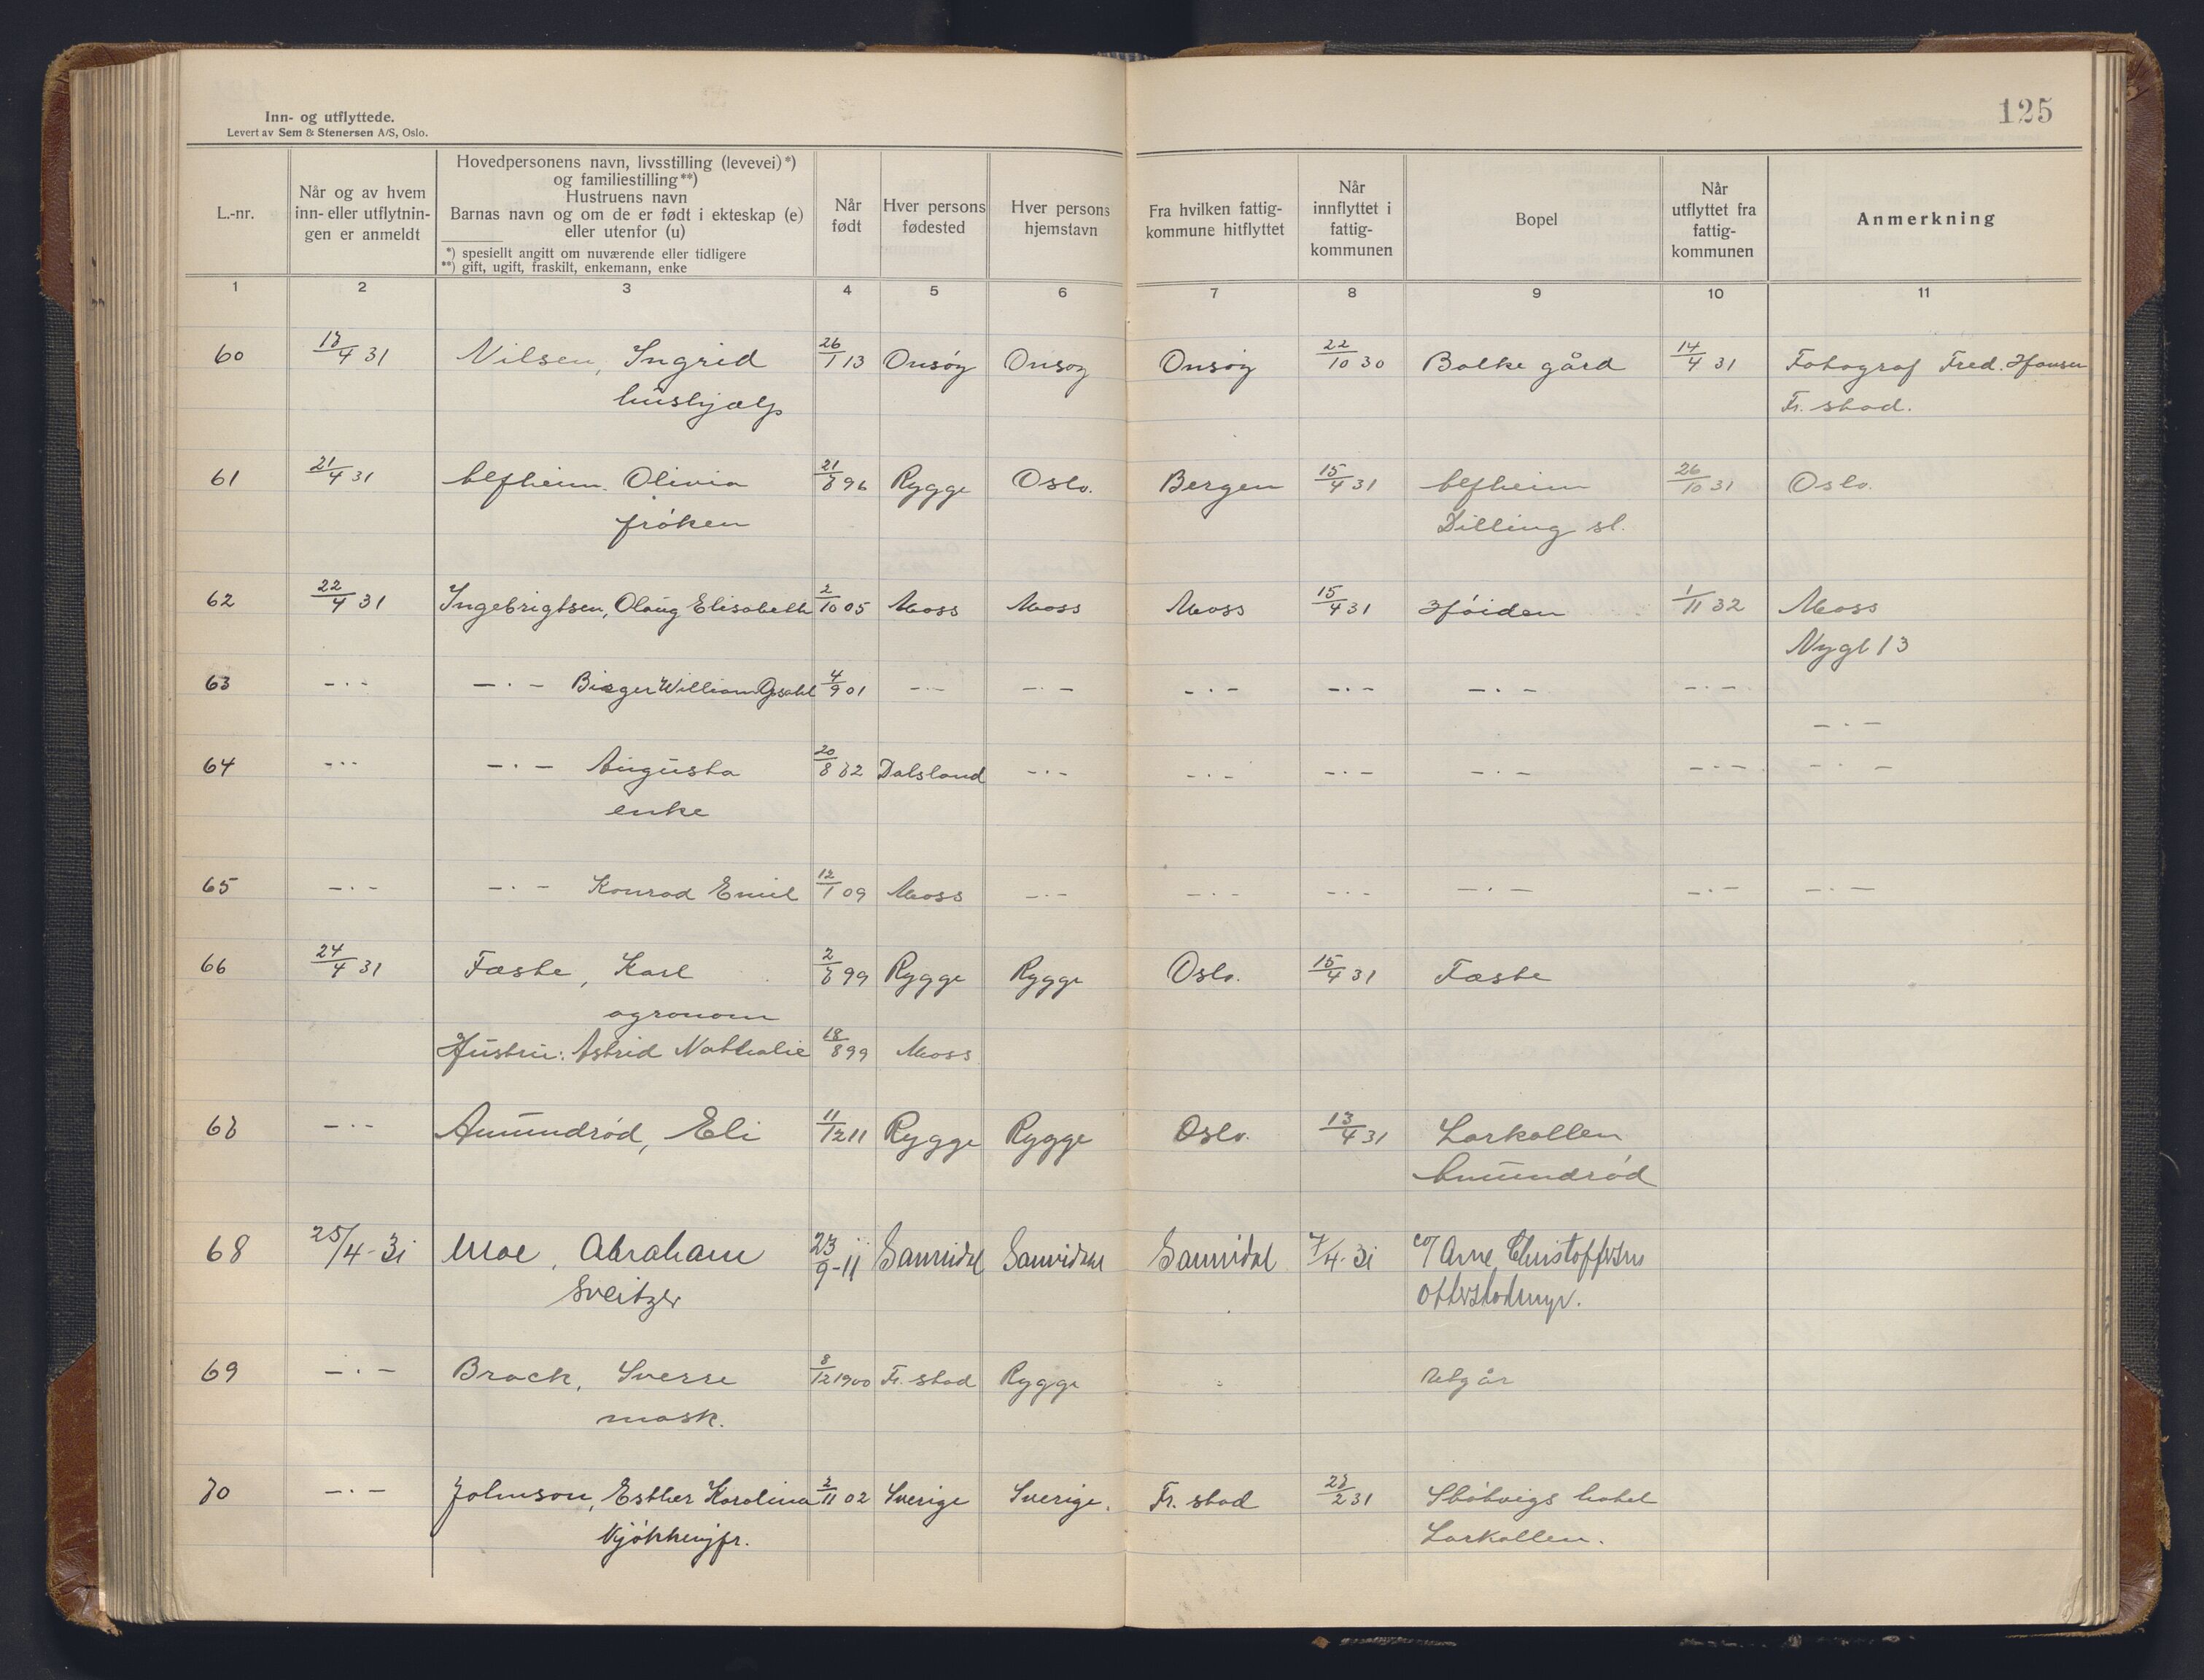 Inn- og utflyttede.
Levert av Sem & Stenersen A/S, Oslo.
125
L.-nr.
Når og av hvem
inn- eller utflytnin-
gen er anmeldt
Hovedpersonens navn, livsstilling (levevei)*)
og familiestilling**)
Hustruens navn
Barnas navn og om de er født i ekteskap (e)
eller utenfor (u)
*) spesielt angitt om nuværende eller tidligere
**) gift, ugift, fraskilt, enkemann, enke
Når
født
Hver persons
fødested
Hver persons
hjemstavn
Fra hvilken fattig-
kommune hitflyttet
Når
innflyttet i
fattig-
kommunen
Bopel
Når
utflyttet fra
fattig-
kommunen
Anmerkning
1 2 3 4 5 6 7 8 9 10 11
60 13/4 31 Nilsen, Ingrid 26/1 13 Onsøy Onsøy Onsøy 22/10 30 Bolke gård 14/4 31 Fotograf Fred. Hansen
hushjælp Fr. stad.
61 21/4 31 Alfheim Olivia 21/7 96 Rygge Oslo. Bergen 15/4 31 Alfheim 26/10 31 Oslo.
frøken Dilling st.
62 22/4 31 Ingebrigtsen, Olaug Elisabeth 2/10 05 Moss Moss Moss 15/4 31 Høiden 1/11 32 Moss
Nygt 13
63 -·- -·- Birger William 4/9 01 -·- -·- -·- -·- -·- -·-
-·-
64 -·- -·- Augusta 20/8 72 Dalsland -·- -·- -·- -·- -·- -·-
enke
65 -·- -·- Konrad Emil 12/1 09 Moss -·- -·- -·- -·- -·- -·-
66 24/4 31 Faste, Karl 2/7 99 Rygge Rygge Oslo. 15/4 31 Faste
agronom
Hustru: Astrid Nathalie 18/8 99 Moss
67 -·- Amundrød, Eli 11/12 11 Rygge Rygge Oslo. 13/4 31 Larkollen
Amundrød
68 25/4-31 Moe, Abraham 23/9-11 Sannidal Sannidal Sannidal 7/4-31 c/o Arne Christoffersen
Sveitzer Otterstadmyr.
69 -·- Brack, Sverre 8/12 1900 Fr. stad Rygge Utgår
mask.
70 -·- Johnson, Esther Karolina 2/11 02 Sverige Sverige. Fr. stad 27/2 31 Støtvigs hotel
Kjøkkenjfr. Larkollen.